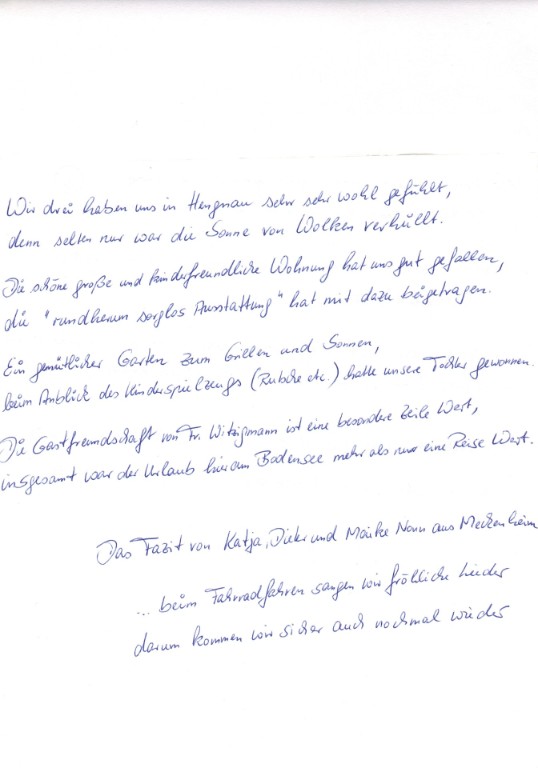 Wir drei haben uns in Hengnau sehr sehr wohl gefühlt,
denn selten nur war die Sonne von Wolken verhüllt.
Die schöne große und kinderfreundliche Wohnung hat uns gut gefallen,
die "rundherum sorglos Ausstattung" hat mit dazu beigetragen.
Ein gemütlicher Garten zum Grillen und Sonnen,
beim Anblick des Kinderspielzeugs (Rutsche etc.) hatte unsere Tochter gewonnen.
Die Gastfreundschaft von Fr. Witzigmann ist eine besondere Zeile Wert,
insgesamt war der Urlaub hier am Bodensee mehr als nur eine Reise Wert.
Das Fazit von Katja, Dieter und Maike Nonn aus Meckenheim
... beim Fahrradfahren sangen wir fröhliche Lieder
darum kommen wir sicher auch nochmal wieder